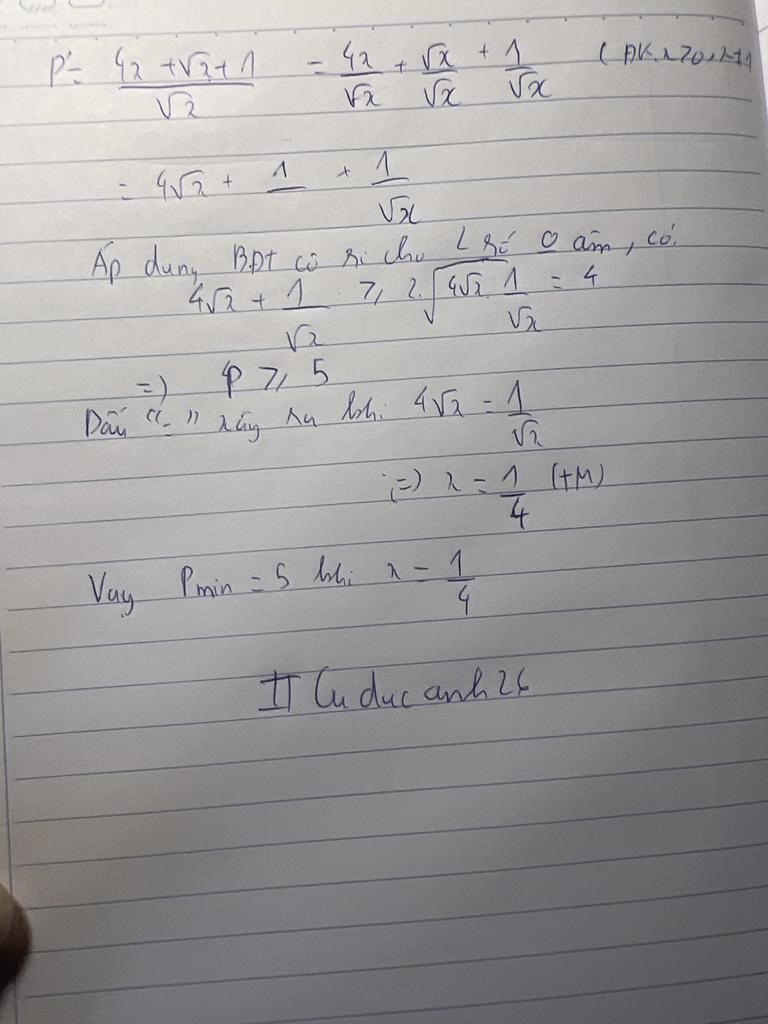 P = (4x + √x + 1)/√x = 4x/√x + √x/√x + 1/√x (ĐK: x>0, x≠1
= 4√x + 1 + 1/√x
Áp dung BĐT cô si cho 2 số 0 âm, có:
4√x + 1/√x ≥ 2.√(4√x.1/√x) = 4
=) P ≥ 5
Dấu "=" xảy ra khi 4√x = 1/√x
(=) x = 1/4 (TM)
Vay Pmin = 5 khi x = 1/4
duc anh 26